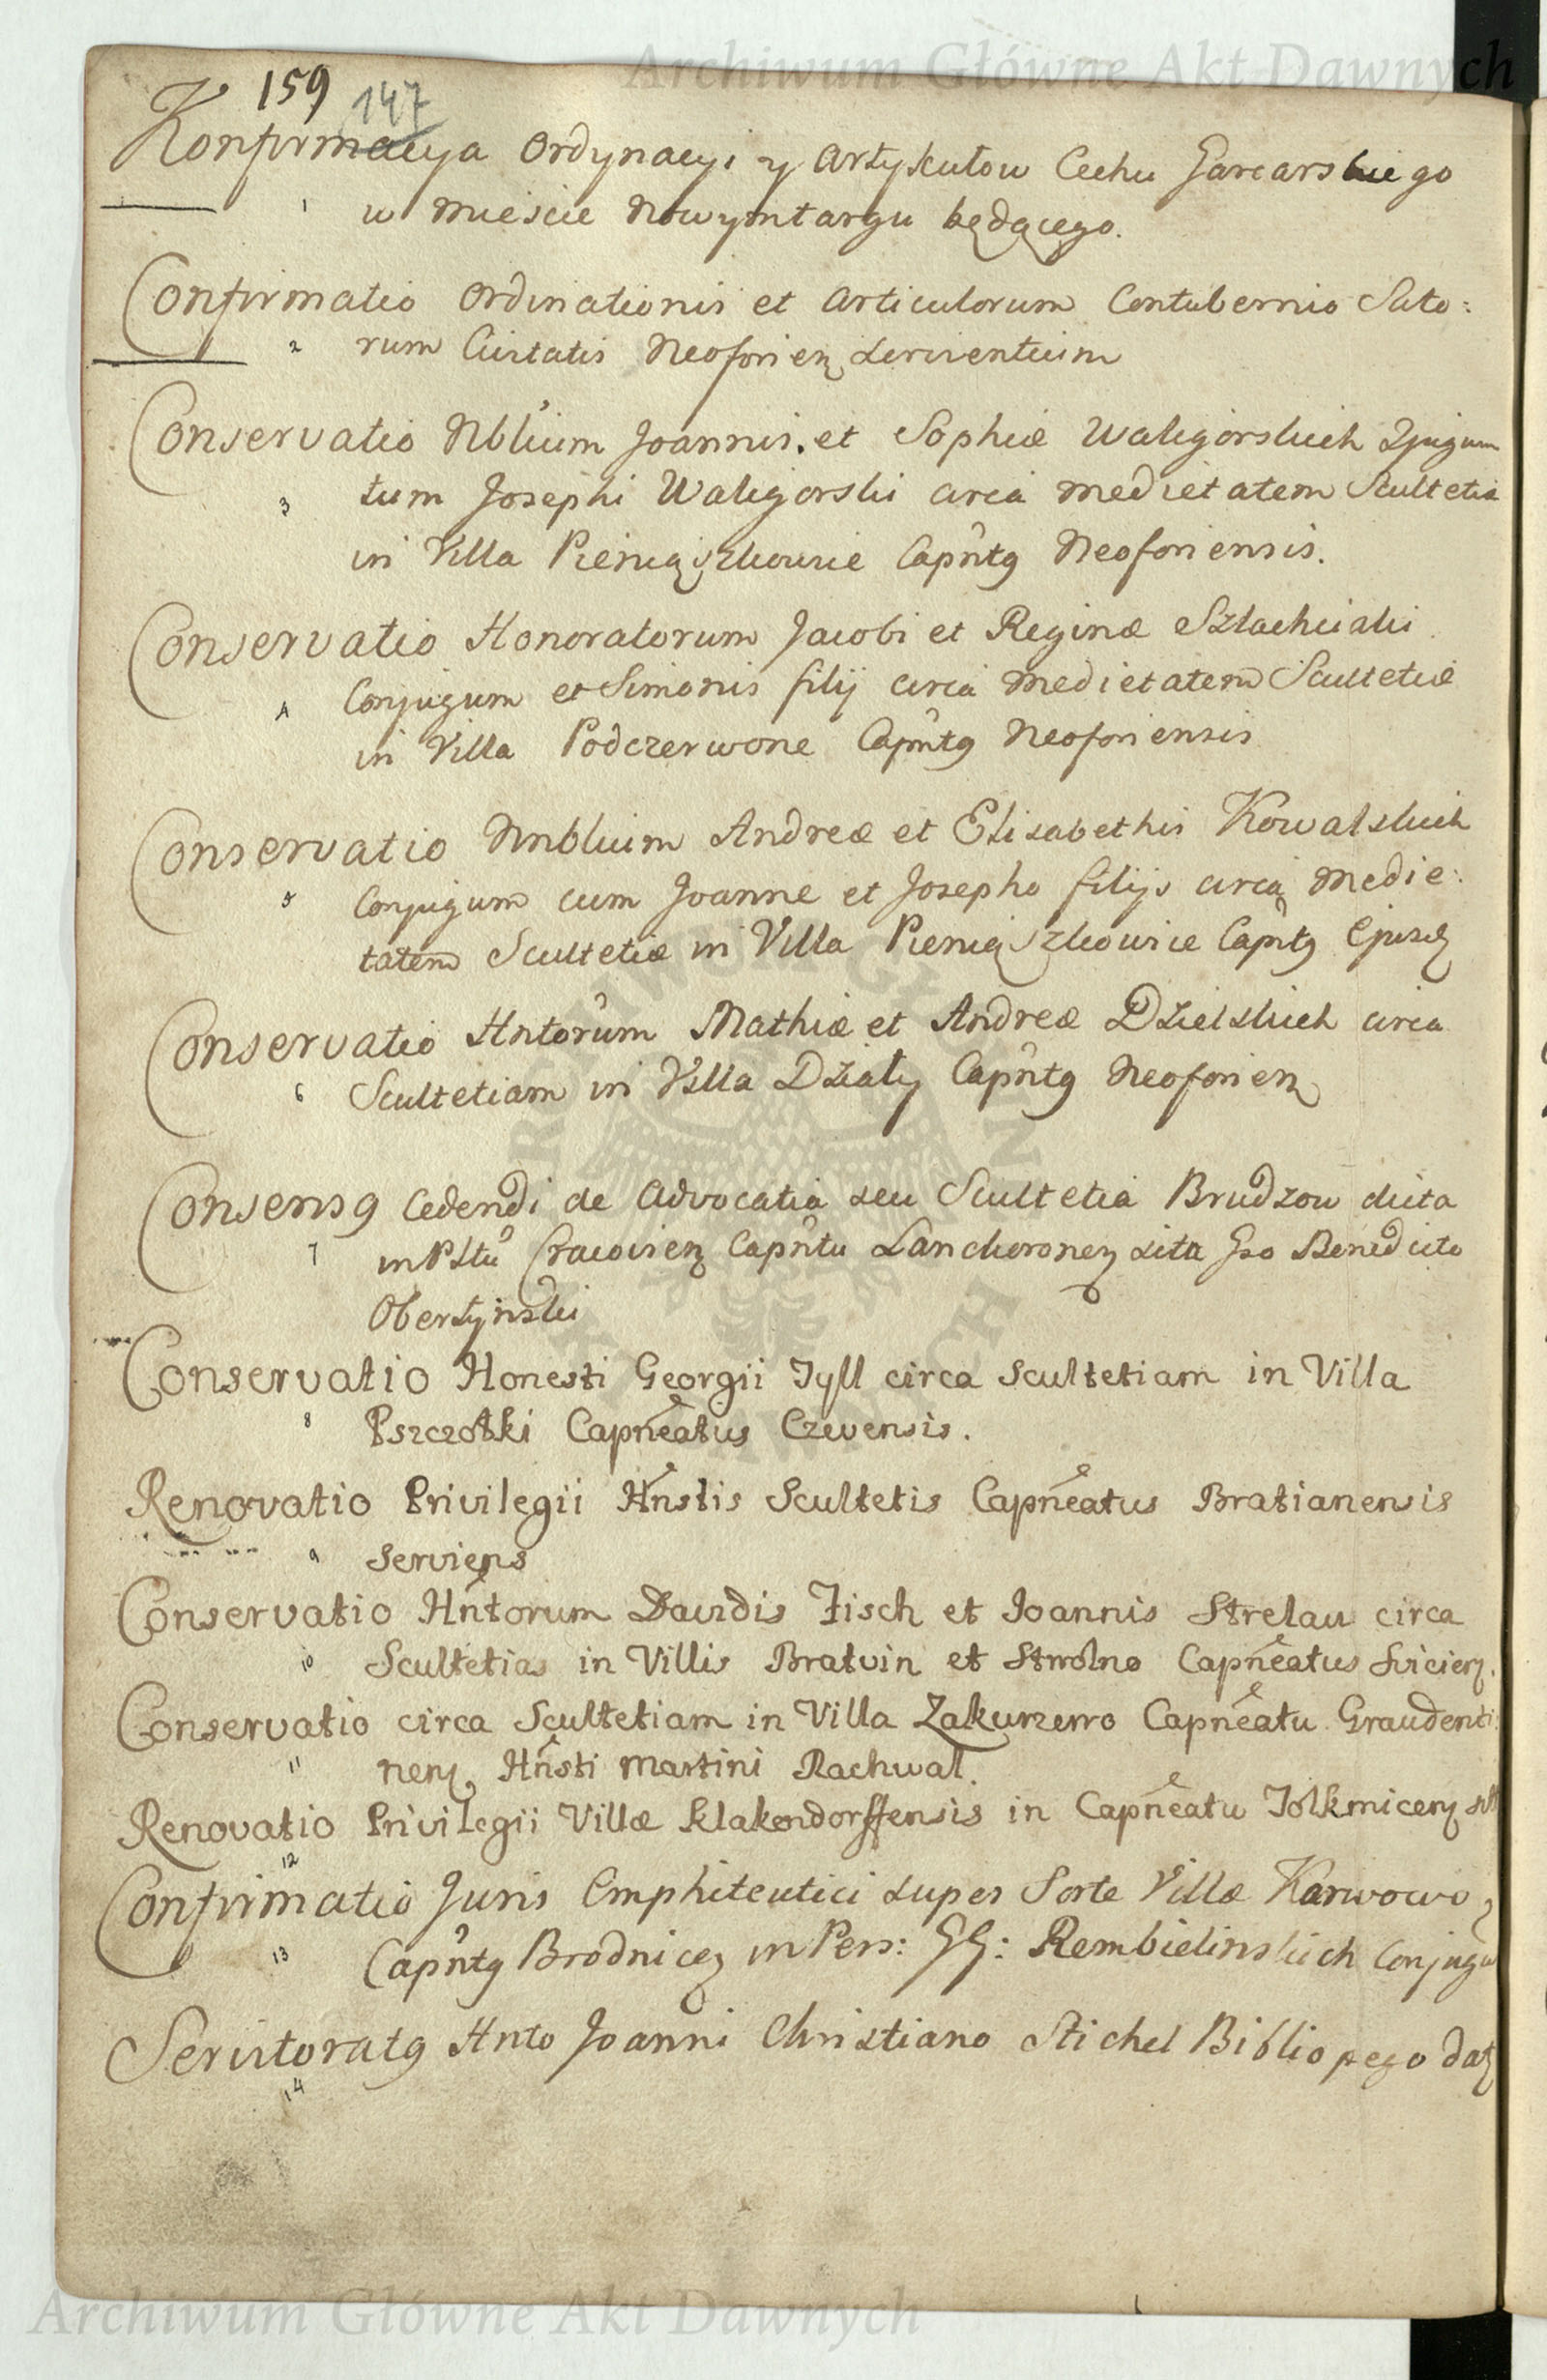 Archiwum Główne Akt Dawnych
159 147
Konfirmacya Ordynacyi y Artykułow Cechu Garcarskiego
1 w Miescie Nowymtargu będącego.
Confirmatio Ordinationis et Articulorum Contubernio Suto:
2 rum Civitatis Neoforien: servientium
Conservatio Nblium Joannis et Sophiæ Waligorskich Cjugum
3 tum Josephi Waligorski circa medietatem Scultetiæ
in Villa Pieniąszkowie Capntg Neoforiensis.
Conservatio Honoratorum Jacobi et Reginæ Szlachciaki
4 Conjugum et Simonis filij circa Medietatem Scultetiæ
in Villa Podczerwone Capntg Neoforiensis
Conservatio Nnblium Andreæ et Elisabethis Kowalskich
5 Conjugum cum Joanne et Josepho filijs circa Medie:
tatem Scultetiæ in Villa Pieniąszkowice Capntg Ejusd
Conservatio Hntorum Mathiæ et Andreæ Dzielskich circa
6 Scultetiam in Villa Działy Capntg Neoforien
Consensg Cedendi de Advocatia seu Scultetia Brudzow dicta
7 in Pltu Cracovien Capntu Lanckoronen sita Gso Benedicto
Obertynski
Conservatio Honesti Georgii Tyll circa Scultetiam in Villa
8 Pszczołki Capneatus Czevensis.
Renovatio Privilegii Hnstis Scultetis Capneatus Bratianensis
9 Serviens
Conservatio Hntorum Davidis Fisch et Joannis Strelau circa
10 Scultetias in Villis Bratvin et Stwolno Capneatus Svicien.
Conservatio circa Scultetiam in Villa Zakurzewo Capneatu Graudenti:
11 nen Hnsti Martini Rachwal.
Renovatio Privilegii Villæ Klakendorffensis in Capneatu Tolkmicen
12
Confirmatio Juris Emphiteutici super Sorte Villæ Karwowo
13 Capntg Brodnicen in Pers: GG: Rembielinskich Conjugu
Servitoratg Hnto Joanni Christiano Stichel Bibliopego dat
14
Archiwum Główne Akt Dawnych